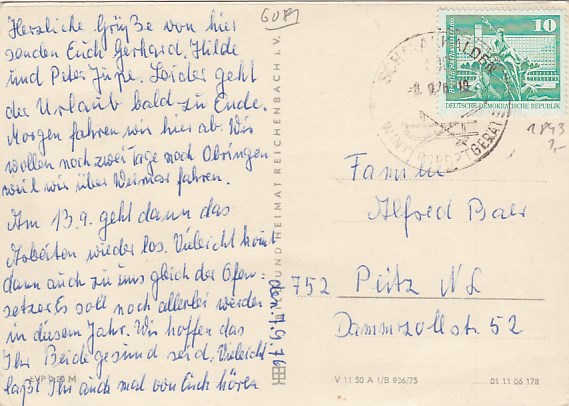 Herzliche Grüße von hier
senden Euch Gerhard, Hilde
und Peter Leider geht
der Urlaub bald zu Ende.
Morgen fahren wir hier ab. Wir
wollen noch zwei Tage nach Obringen
weil wir über Weimar fahren.
Am 13.9. geht dann das
Arbeiten wieder los. Vieleicht kommt
dann auch zu uns gleich der Ofen=
setzer. Es soll noch allerlei werden
in diesem Jahr. Wir hoffen das
Ihr Beide gesund seid. Vieleicht
laßt Ihr auch mal von Euch hören
den 7.9.76
EVP 0,20 M
UND HEIMAT REICHENBACH I. V.
10
DEUTSCHE DEMOKRATISCHE REPUBLIK
WINTERSPORTGERÄTE
1843
1,-
Familie
Alfred Baer
752 Peitz NL
Dammzollstr. 52
V 11 50 A 1/B 936/75
01 11 06 178